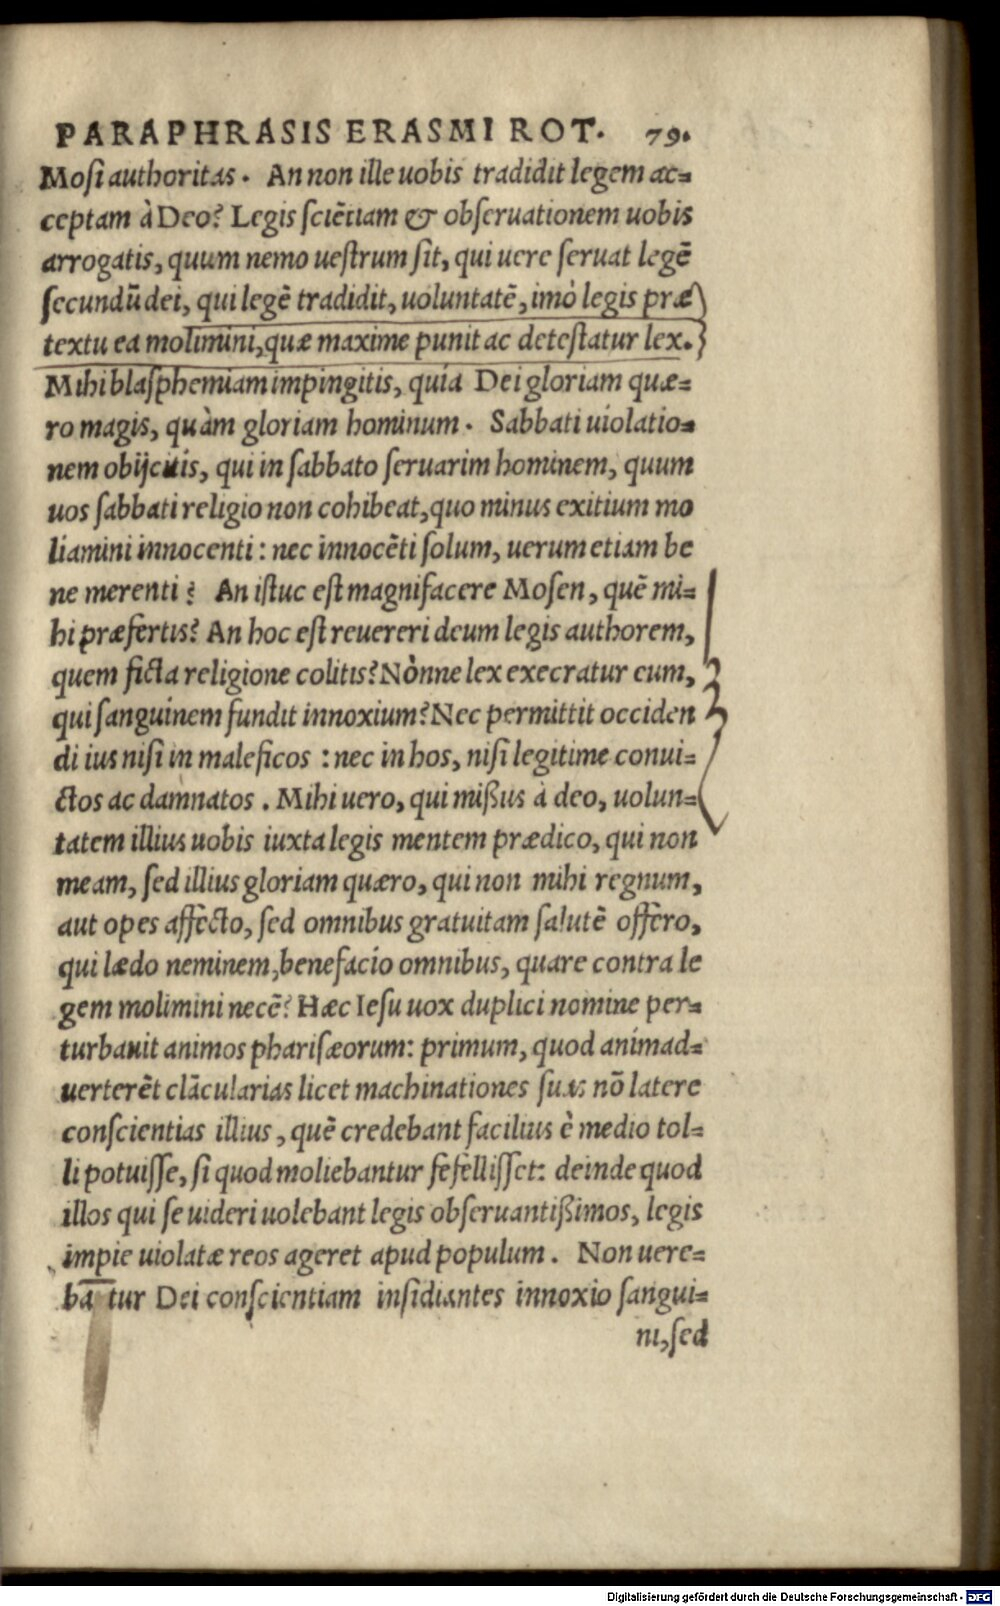 PARAPHRASIS ERASMI ROT. 79.
Mosi authoritas. An non ille uobis tradidit legem ac=
ceptam à Deo? Legis sciẽtiam & obseruationem uobis
arrogatis, quum nemo uestrum sit, qui uere seruat legẽ
secundũ dei, qui legẽ tradidit, uoluntatẽ, imò legis præ
textu ea molimini, quæ maxime punit ac detestatur lex.
Mihi blasphemiam impingitis, quia Dei gloriam quæ=
ro magis, quàm gloriam hominum. Sabbati uiolatio=
nem obijcitis, qui in sabbato seruarim hominem, quum
uos sabbati religio non cohibeat, quo minus exitium mo
liamini innocenti: nec innocẽti solum, uerum etiam be
ne merenti? An istuc est magnifacere Mosen, quẽ mi=
hi præfertis? An hoc est reuereri deum legis authorem,
quem ficta religione colitis? Nònne lex execratur eum,
qui sanguinem fundit innoxium? Nec permittit occiden
di ius nisi in maleficos: nec in hos, nisi legitime conui=
ctos ac damnatos. Mihi uero, qui mißus à deo, uolun=
tatem illius uobis iuxta legis mentem prædico, qui non
meam, sed illius gloriam quæro, qui non mihi regnum,
aut opes affecto, sed omnibus gratuitam salutẽ offero,
qui lædo neminem, benefacio omnibus, quare contra le
gem molimini necẽ? Hæc Iesu uox duplici nomine per=
turbauit animos pharisæorum: primum, quod animad=
uerterẽt clãcularias licet machinationes suas nõ latere
conscientias illius, quẽ credebant facilius è medio tol=
li potuisse, si quod moliebantur fefellisset: deinde quod
illos qui se uideri uolebant legis obseruantißimos, legis
impie uiolatæ reos ageret apud populum. Non uere=
bãtur Dei conscientiam insidiantes innoxio sangui=
ni, sed
Digitalisierung gefördert durch die Deutsche Forschungsgemeinschaft - DFG